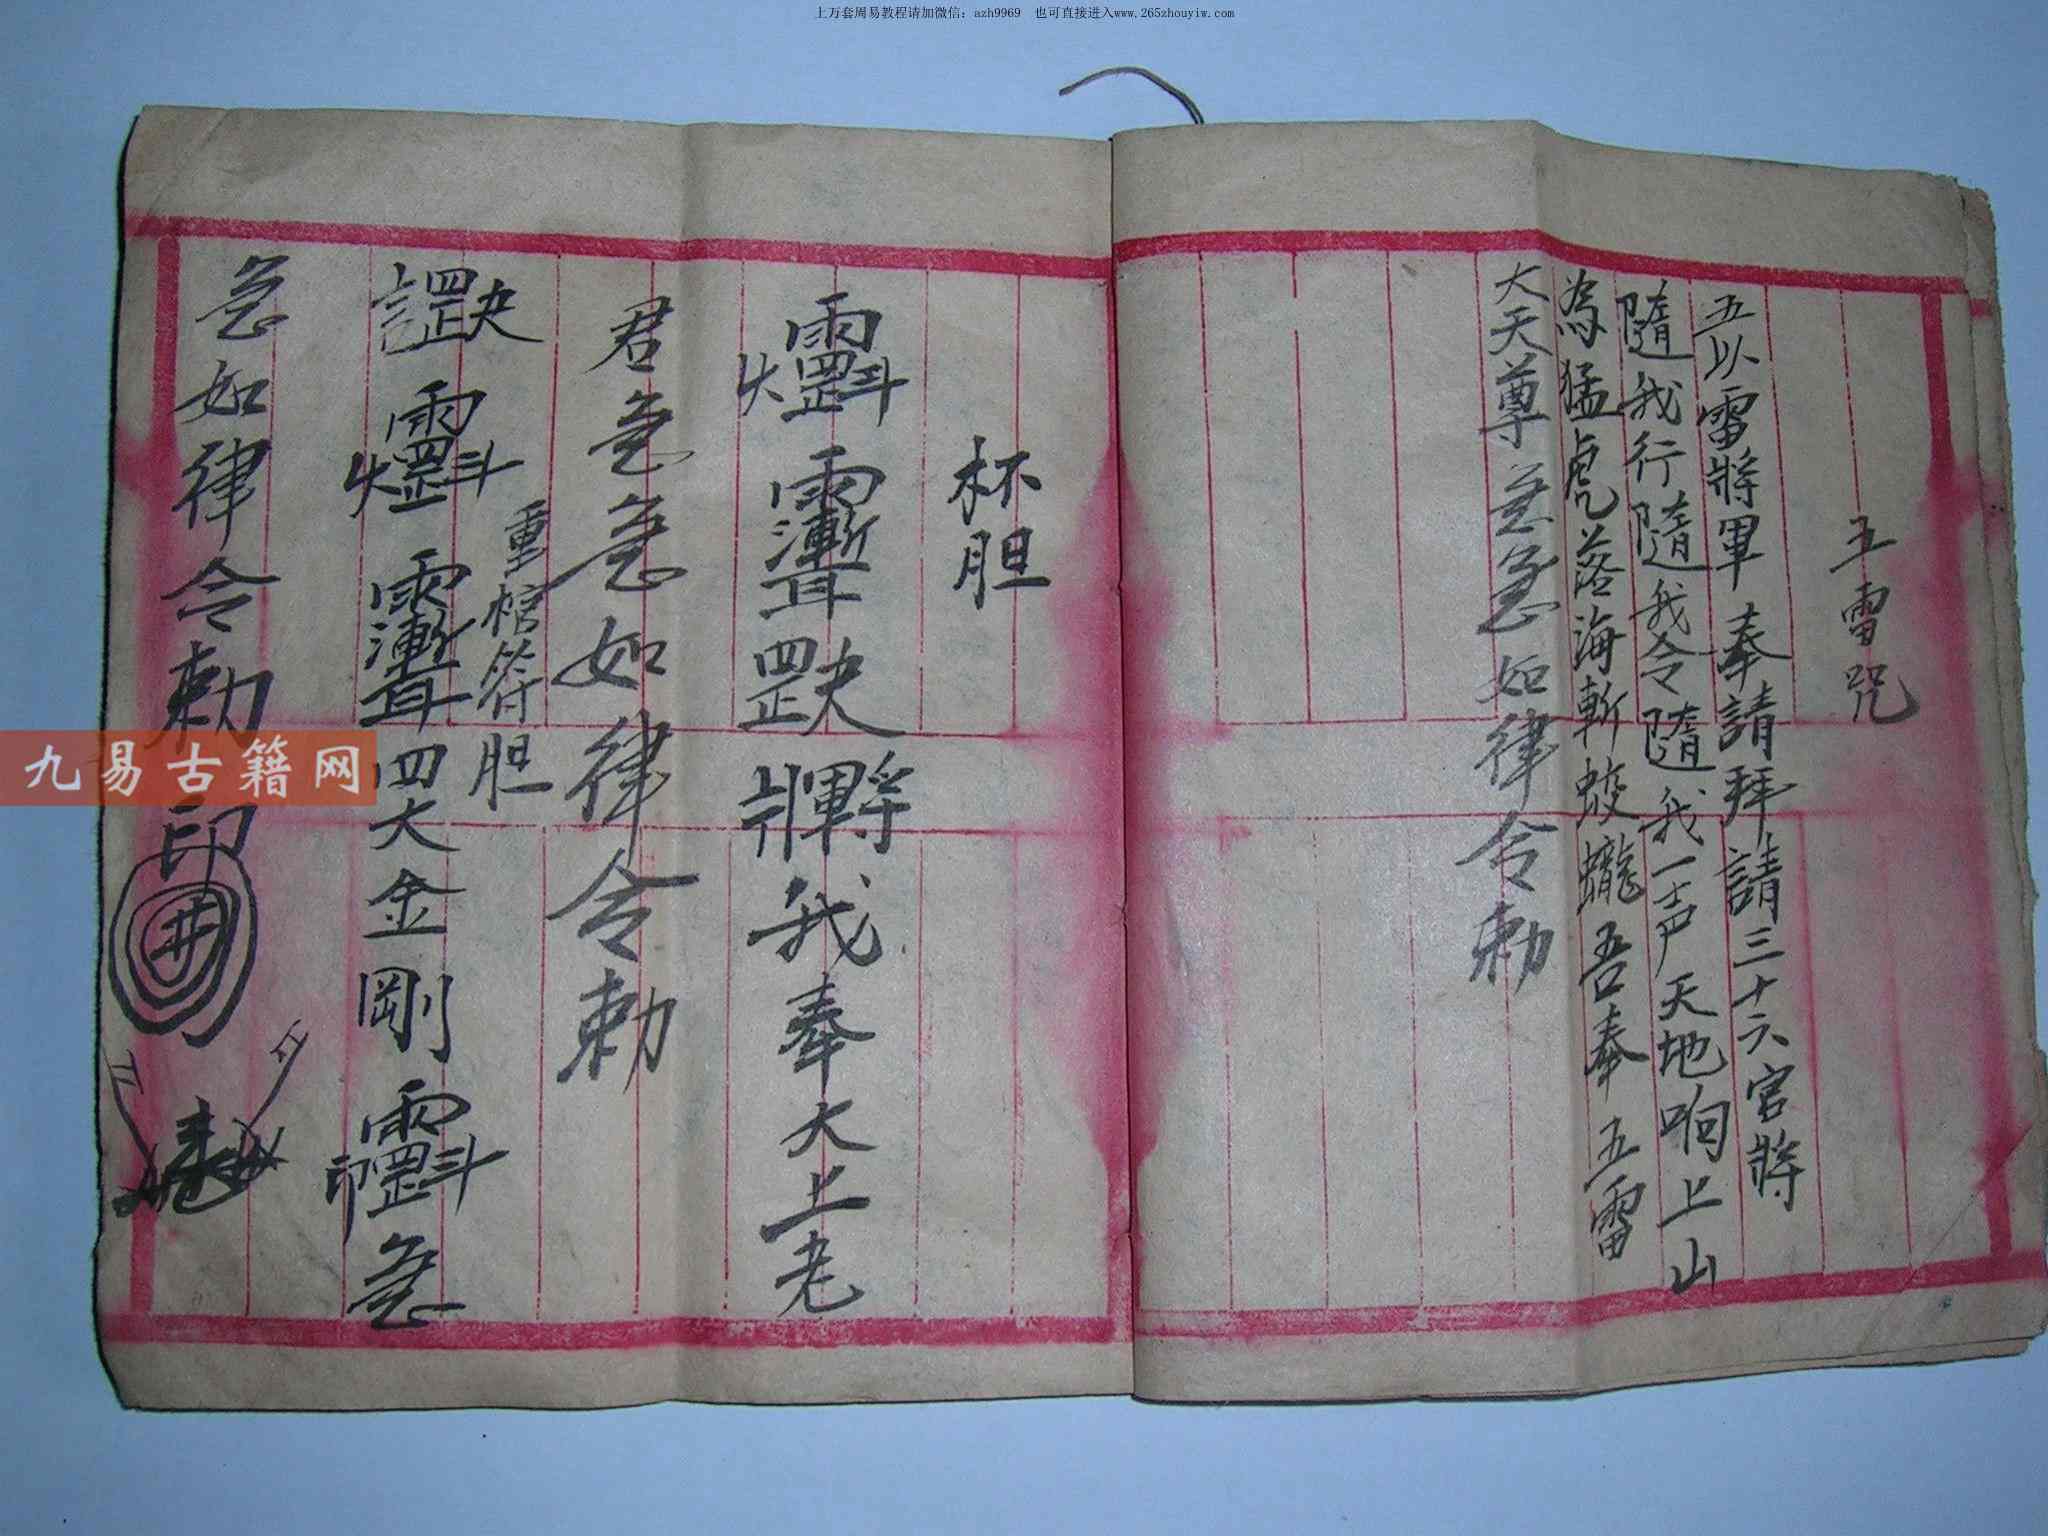 上万套周易教程请加微信：azh9969 也可直接进入www.265zhouyiw.com
五雷咒
五以雷將軍奉請拜請三十六官將
隨我行隨我令隨我一声天地响上山
為猛虎落海斬蛟蠬吾奉五雷
大天尊急急如律令勅
杯胆
我奉大上老
君急急如律令勅
重棺符胆
四大金剛 急
急如律令勅
印
井
九易古籍网